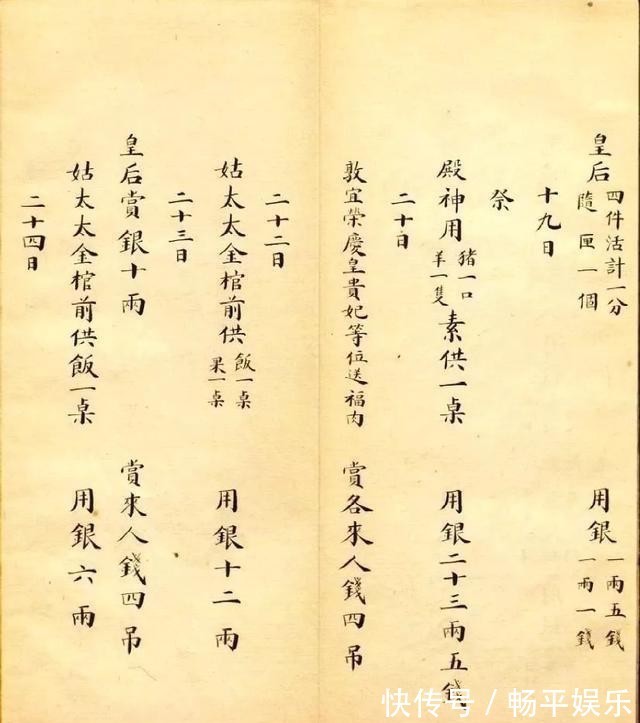 皇后四件活計一分隨匣一個 用銀一兩五錢一兩一錢
十九日
祭
殿神用猪一口羊一隻素供一桌 用銀二十三兩五錢
二十日
敦宜榮慶皇貴妃等位送福肉 賞各來人錢四吊
二十二日
姑太太金棺前供飯一桌果一桌 用銀十二兩
二十三日
皇后賞銀十兩 賞來人錢四吊
姑太太金棺前供飯一桌 用銀六兩
二十四日
快传号/畅平娱乐